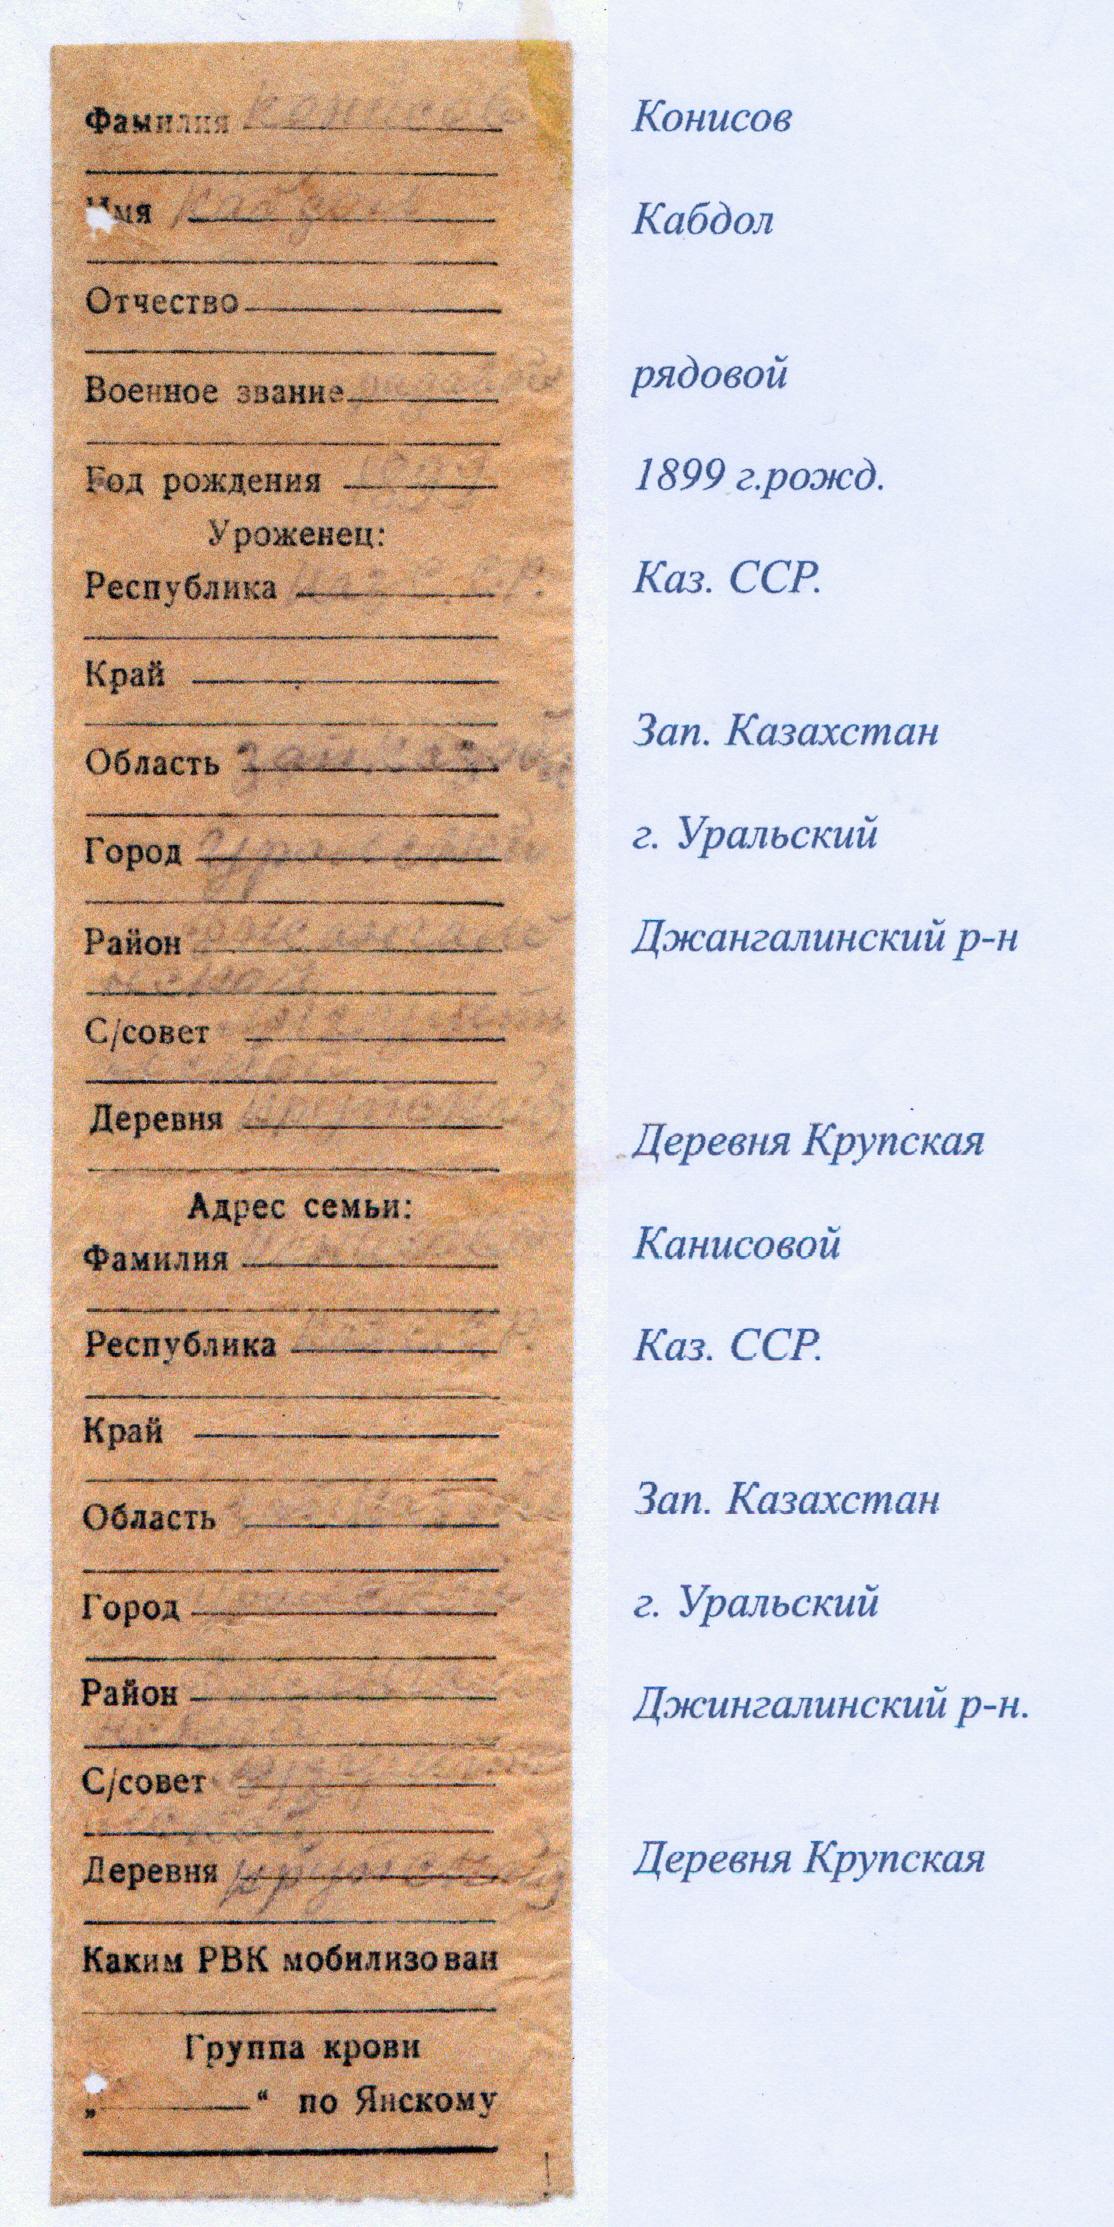 Фамилия Конисов Конисов
Имя Кабдол Кабдол
Отчество
Военное звание рядовой рядовой
Год рождения 1899 1899 г.рожд.
Уроженец:
Республика Каз С.С.Р. Каз. ССР.
Край
Область Зап. Зап. Казахстан
Город Уральский г. Уральский
Район Джангалинский р-н
С/совет
Деревня Деревня Крупская
Адрес семьи:
Фамилия Канисовой
Республика Каз. ССР.
Край
Область Зап. Казахстан
Город г. Уральский
Район Джингалинский р-н.
С/совет
Деревня Деревня Крупская
Каким РВК мобилизован
Группа крови
„ “ по Янскому